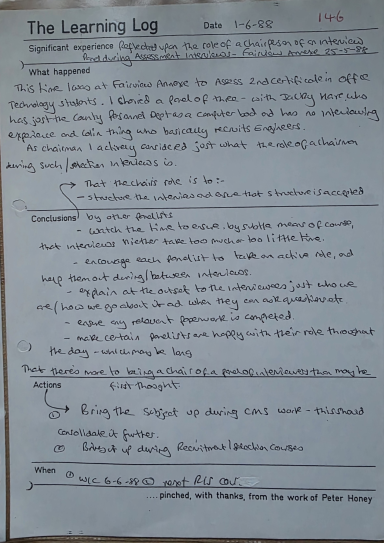 146
The Learning Log Date 1-6-88
Significant experience Reflected upon the role of a chairperson of an interview
Panel during Assessment Interviews - Fairview Annexe 25-5-88
What happened
This time I was at Fairview Annexe to Assess 2nd certificate in office
Technology students. I shared a panel of three - with Jacky Hare, who
has just the County Personnel Dept as a computer bod and has no interviewing
experience and Colin thing who basically recruits Engineers.
As chairman I actively considered just what the role of a chairman
during such / selection interviews is.
→ That the chair's role is to :-
- structure the interview and ensure that structure is accepted
Conclusions by other panellists
- watch the time to ensure, by subtle means of course,
that interviews neither take too much or too little time.
- encourage each panellist to take an active role, and
help them out during/between interviews.
- explain at the outset to the interviewees just who we
are / how we go about it and when they can ask questions etc
- ensure any relevant paperwork is completed.
- make certain panellists are happy with their role throughout
the day - which may be long
That there's more to being a chair of a panel of interviewers than may be
Actions first thought.
① Bring the subject up during CMS work - this should
consolidate it further.
② Bring it up during Recruitment / selection courses
When ① W/C 6-6-88 ② next R/S
....pinched, with thanks, from the work of Peter Honey